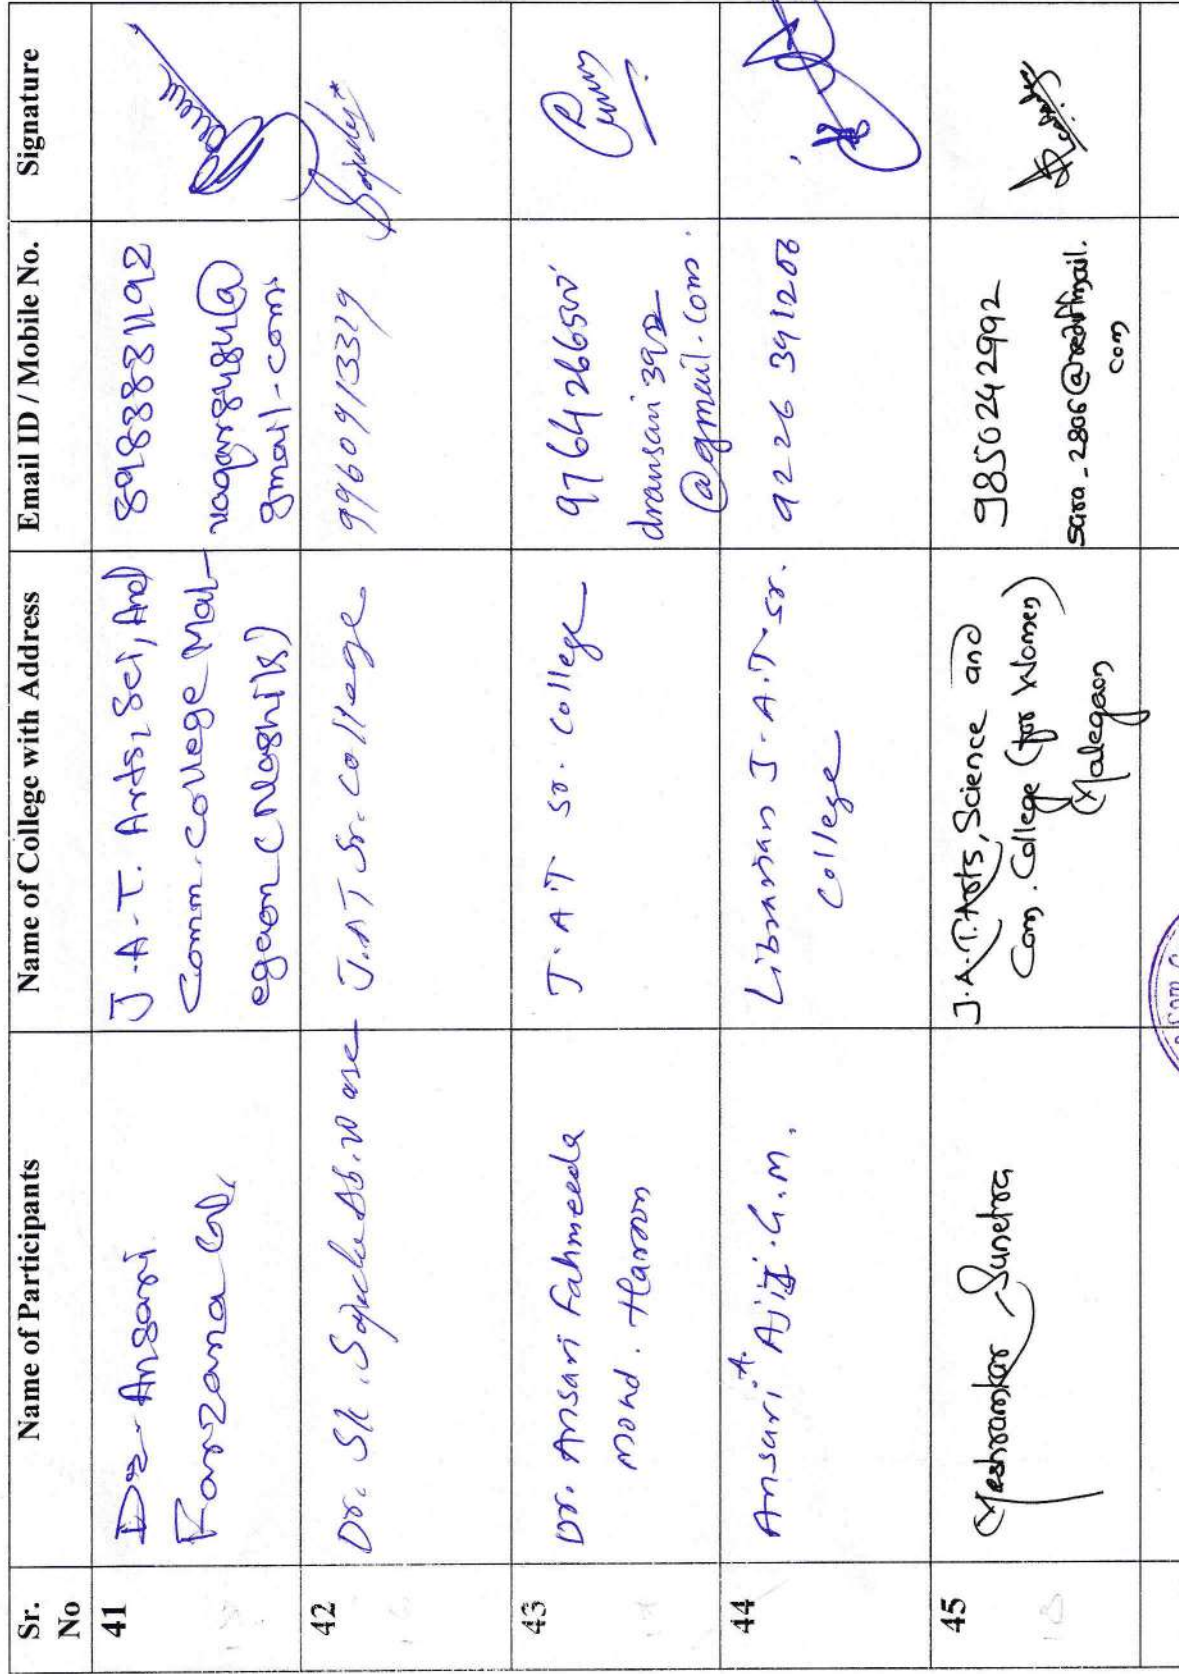 Sr. No
Name of Participants
Name of College with Address
Email ID / Mobile No.
Signature
41
Dr. Ansari
Farzana
J.A.T. Arts, Sci, And
Comm. College Mal-
egaon (Nashik)
8983881192
gmail.com
42
Dr. Sk.
J.A.T Sr. College
9960913329
43
Dr. Ansari Fahmeeda
Mohd. Haroon
J.A.T Sr. College
dransari392
@gmail.com.
44
Ansari A. Ajij. G.M.
Librarian J.A.T Sr.
College
9226391206
45
Meshramkar Sunetra
J.A.T. Arts, Science and
Com. College (for Women)
Malegaon
9850242992
saira_2806@rediffmail.
com